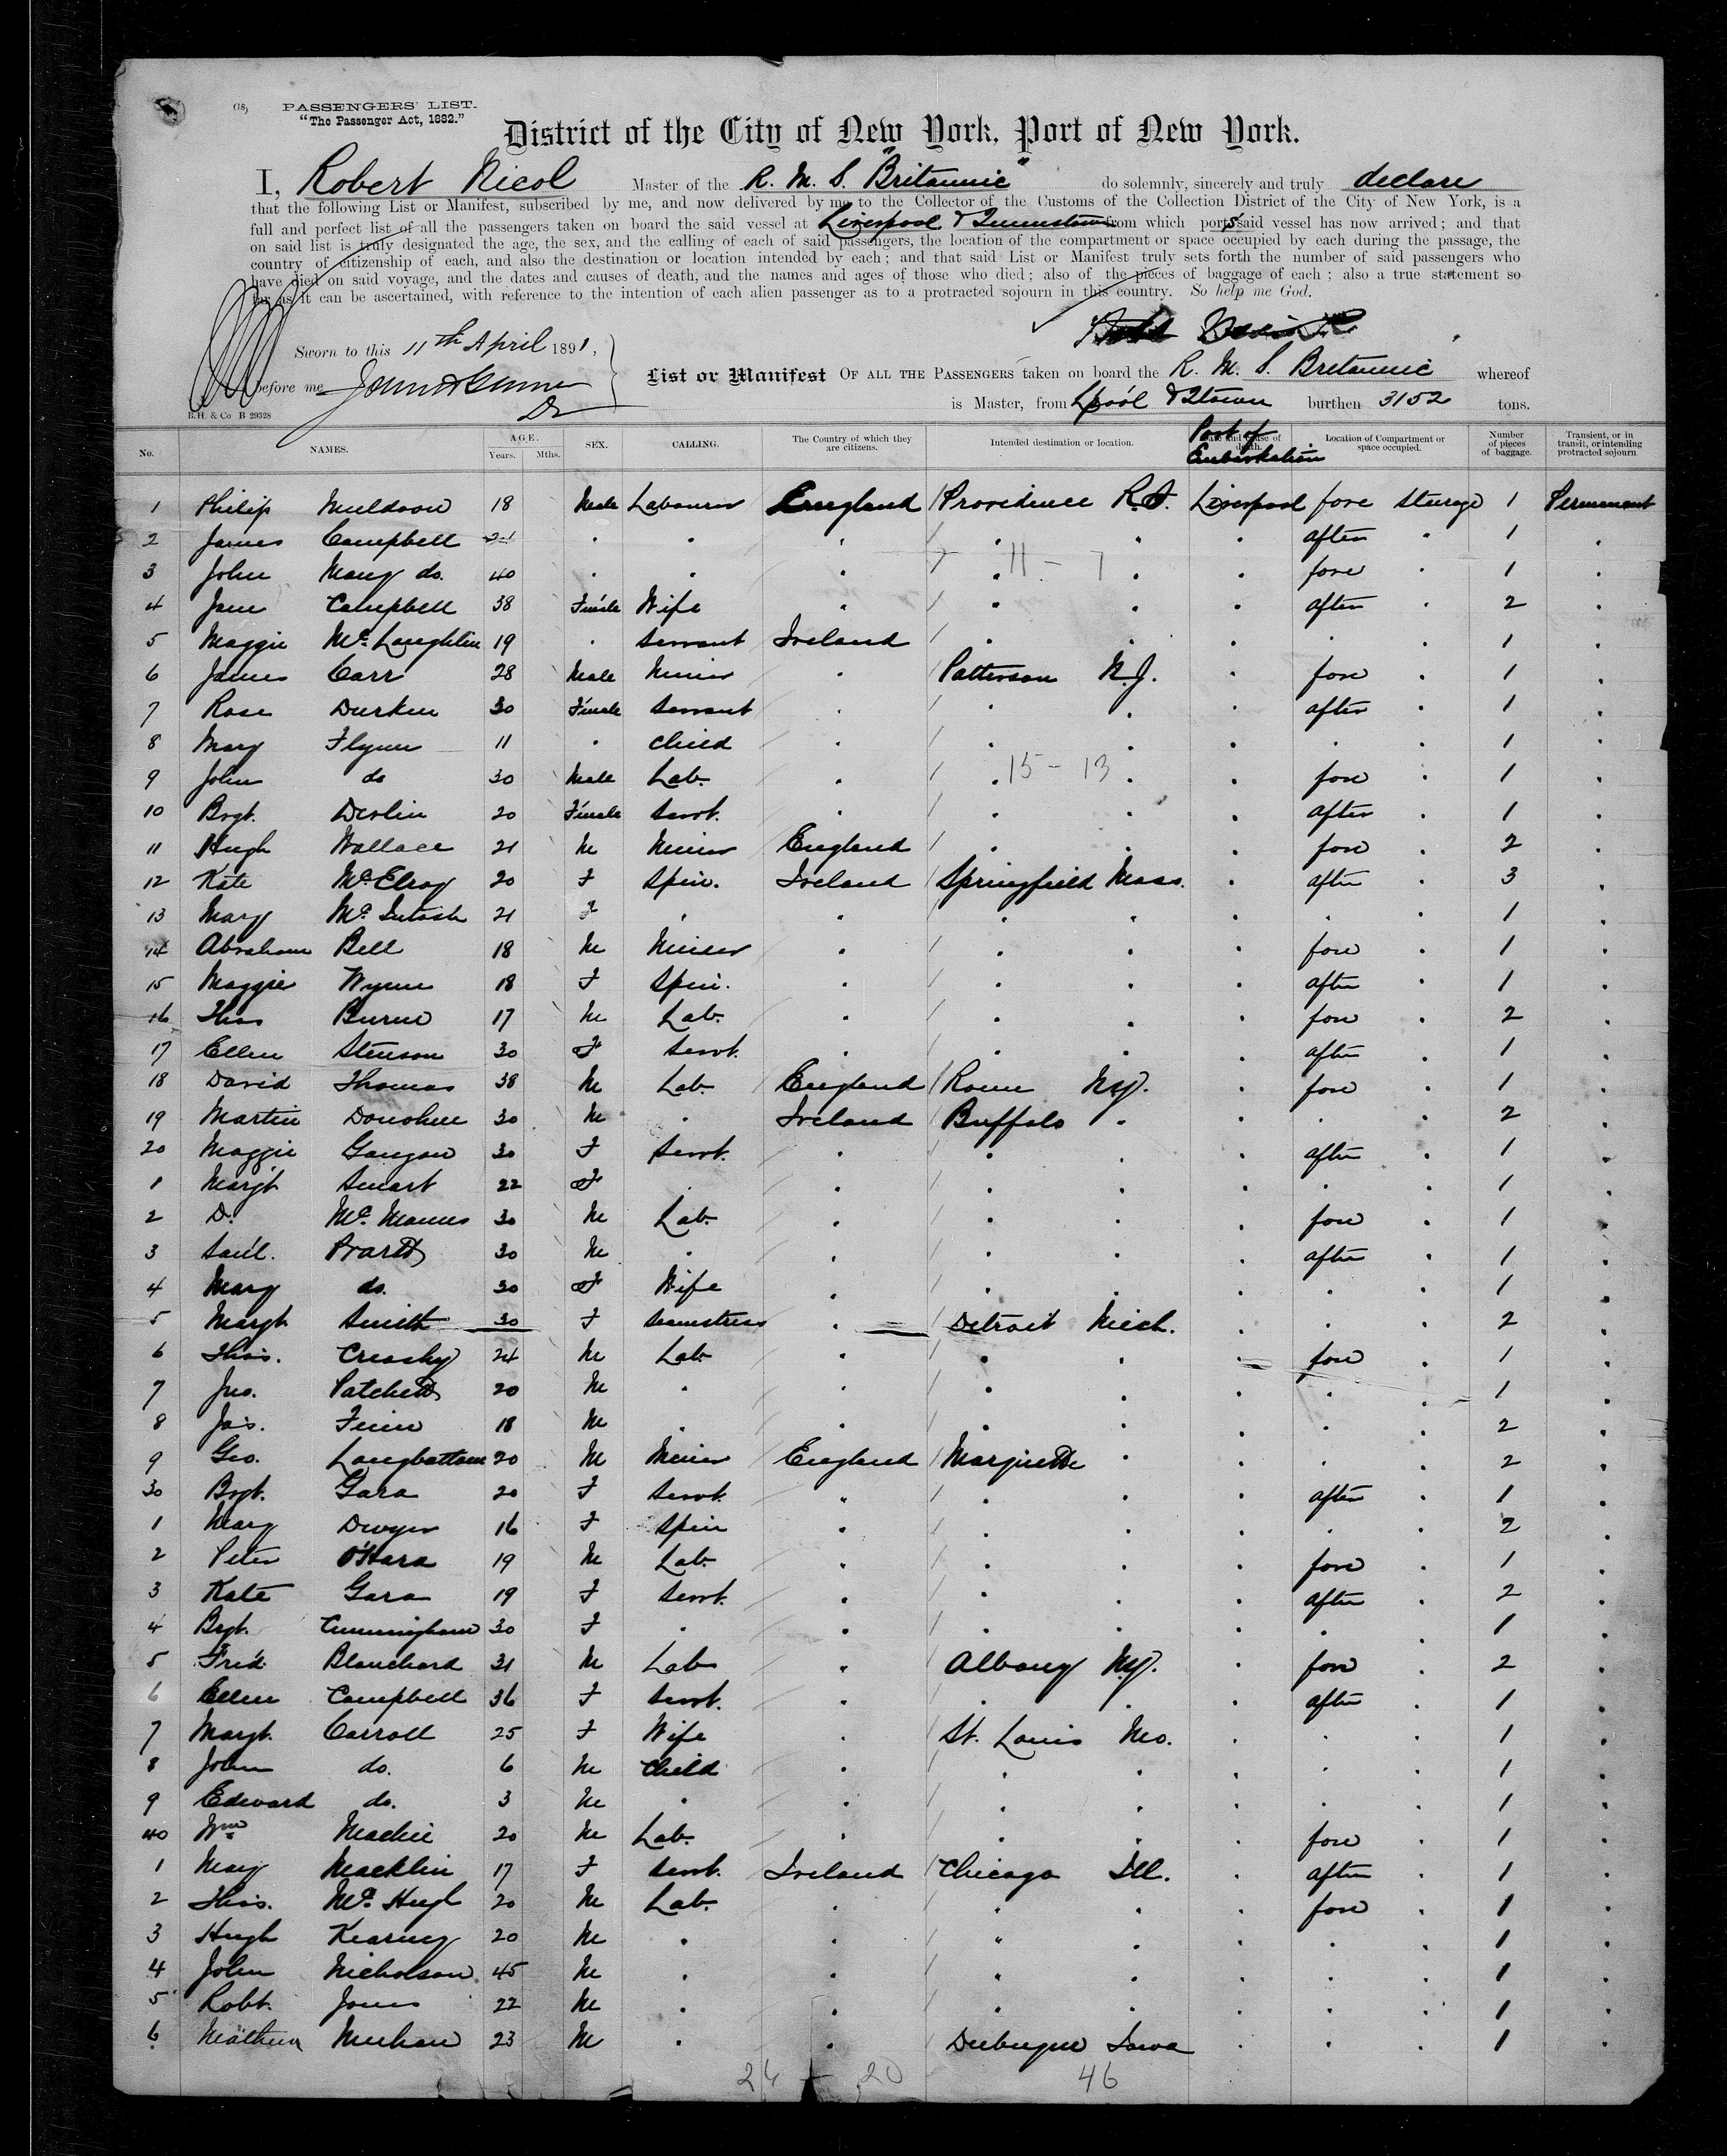 (18) PASSENGERS' LIST.
"The Passenger Act, 1882."
District of the City of New York, Port of New York.
I, Robert Nicol Master of the R. M. S. "Britannic" do solemnly, sincerely and truly declare
that the following List or Manifest, subscribed by me, and now delivered by me to the Collector of the Customs of the Collection District of the City of New York, is a
full and perfect list of all the passengers taken on board the said vessel at Liverpool & Queenstown from which ports said vessel has now arrived; and that
on said list is truly designated the age, the sex, and the calling of each of said passengers, the location of the compartment or space occupied by each during the passage, the
country of citizenship of each, and also the destination or location intended by each; and that said List or Manifest truly sets forth the number of said passengers who
have died on said voyage, and the dates and causes of death, and the names and ages of those who died; also of the pieces of baggage of each; also a true statement so
far as it can be ascertained, with reference to the intention of each alien passenger as to a protracted sojourn in this country. So help me God.
Sworn to this 11th April 1891,
before me
List or Manifest OF ALL THE PASSENGERS taken on board the R. M. S. Britannic whereof
B.H. & Co B 29328
is Master, from L'pool & Qtown burthen 3152 tons.
No. NAMES. AGE. Years. Mths. SEX. CALLING. The Country of which they are citizens. Intended destination or location. Port of Embarkation Location of Compartment or space occupied. Number of pieces of baggage. Transient, or in transit, or intending protracted sojourn
1 Philip Muldoon 18 Male Labourer England Providence R.I. Liverpool fore steerage 1 Permanent
2 James Campbell 21 . . . . . . after . 1 .
11 - 7
3 John Mong do. 40 . . . . . . fore . 1 .
4 Jane Campbell 38 Female Wife . . . . after . 2 .
5 Maggie McLaughlin 19 . Servant Ireland . . . . . 1 .
6 James Carr 28 Male Miner . Patterson N.J. . fore . 1 .
7 Rose Durkin 30 Female Servant . . . . after . 1 .
8 Mary Flynn 11 . Child . . . . . . 1 .
9 John do 30 Male Lab. . . . . fore . 1 .
15 - 13
10 Brgt. Devlin 20 Female Servt. . . . . after . 1 .
11 Hugh Wallace 21 M Miner England . . . fore . 2 .
12 Kate McElroy 20 F Spin. Ireland Springfield Mass. . after . 3 .
13 Mary McIntosh 21 F . . . . . . . 1 .
14 Abraham Bell 18 M Miner . . . . fore . 1 .
15 Maggie Wynne 18 F Spin. . . . . after . 1 .
16 Thos Burne 17 M Lab. . . . . fore . 2 .
17 Ellen Stenson 30 F Servt. . . . . after . 1 .
18 David Thomas 38 M Lab. England Rome N.Y. . fore . 1 .
19 Martin Donohue 30 M . Ireland Buffalo . . . . 2 .
20 Maggie 30 F Servt. . . . . after . 1 .
1 Margt Smart 22 F . . . . . . . 1 .
2 D. McManus 30 M Lab. . . . . fore . 1 .
3 Saml. 30 M . . . . . after . 1 .
4 Mary do. 30 F Wife . . . . . . 1 .
5 Margt Smith 30 F Seamstress . Detroit Mich. . . . 2 .
6 Thos. 24 M Lab. . . . . fore . 1 .
7 Jno. Patchett 20 M . . . . . . . 1 .
8 Jas. 18 M . . . . . . . 2 .
9 Geo. Longbottom 20 M Miner England Marquette . . . . 2 .
30 Brgt. Gara 20 F Servt. . . . . after . 1 .
1 Mary Dwyer 16 F Spin . . . . . . 2 .
2 Peter O'Hara 19 M Lab. . . . . fore . 1 .
3 Kate Gara 19 F Servt. . . . . after . 2 .
4 Brgt. Cunningham 30 F . . . . . . . 1 .
5 Fred. Blanchard 31 M Lab . Albany N.Y. . fore . 2 .
6 Ellen Campbell 36 F Servt. . . . . after . 1 .
7 Margt. Carroll 25 F Wife . St. Louis Mo. . . . 1 .
8 John do. 6 M Child . . . . . . 1 .
9 Edward do. 3 M . . . . . . . 1 .
40 Wm Mackie 20 M Lab. . . . . fore . 1 .
1 Mary Macklin 17 F Servt. Ireland Chicago Ill. . after . 1 .
2 Thos. McHugh 20 M Lab. . . . . fore . 1 .
3 Hugh Kearney 20 M . . . . . . . 1 .
4 John Nicholson 45 M . . . . . . . 1 .
5 Robt. Jones 22 M . . . . . . . 1 .
6 Mathew Meehan 23 M . . Dubuque Iowa . . . 1 .
26 + 20 46